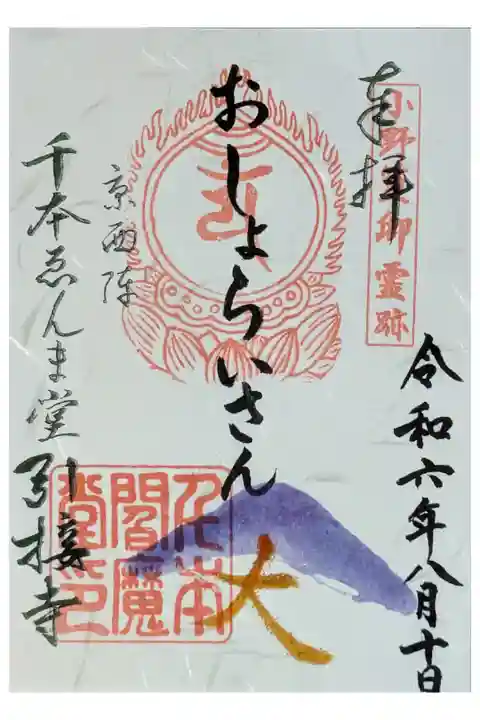 奉拝
小野篁卿霊跡
令和六年八月十日
おしょらいさん
京西陣
千本ゑんま堂 引接寺
千本
閻魔
堂印
大